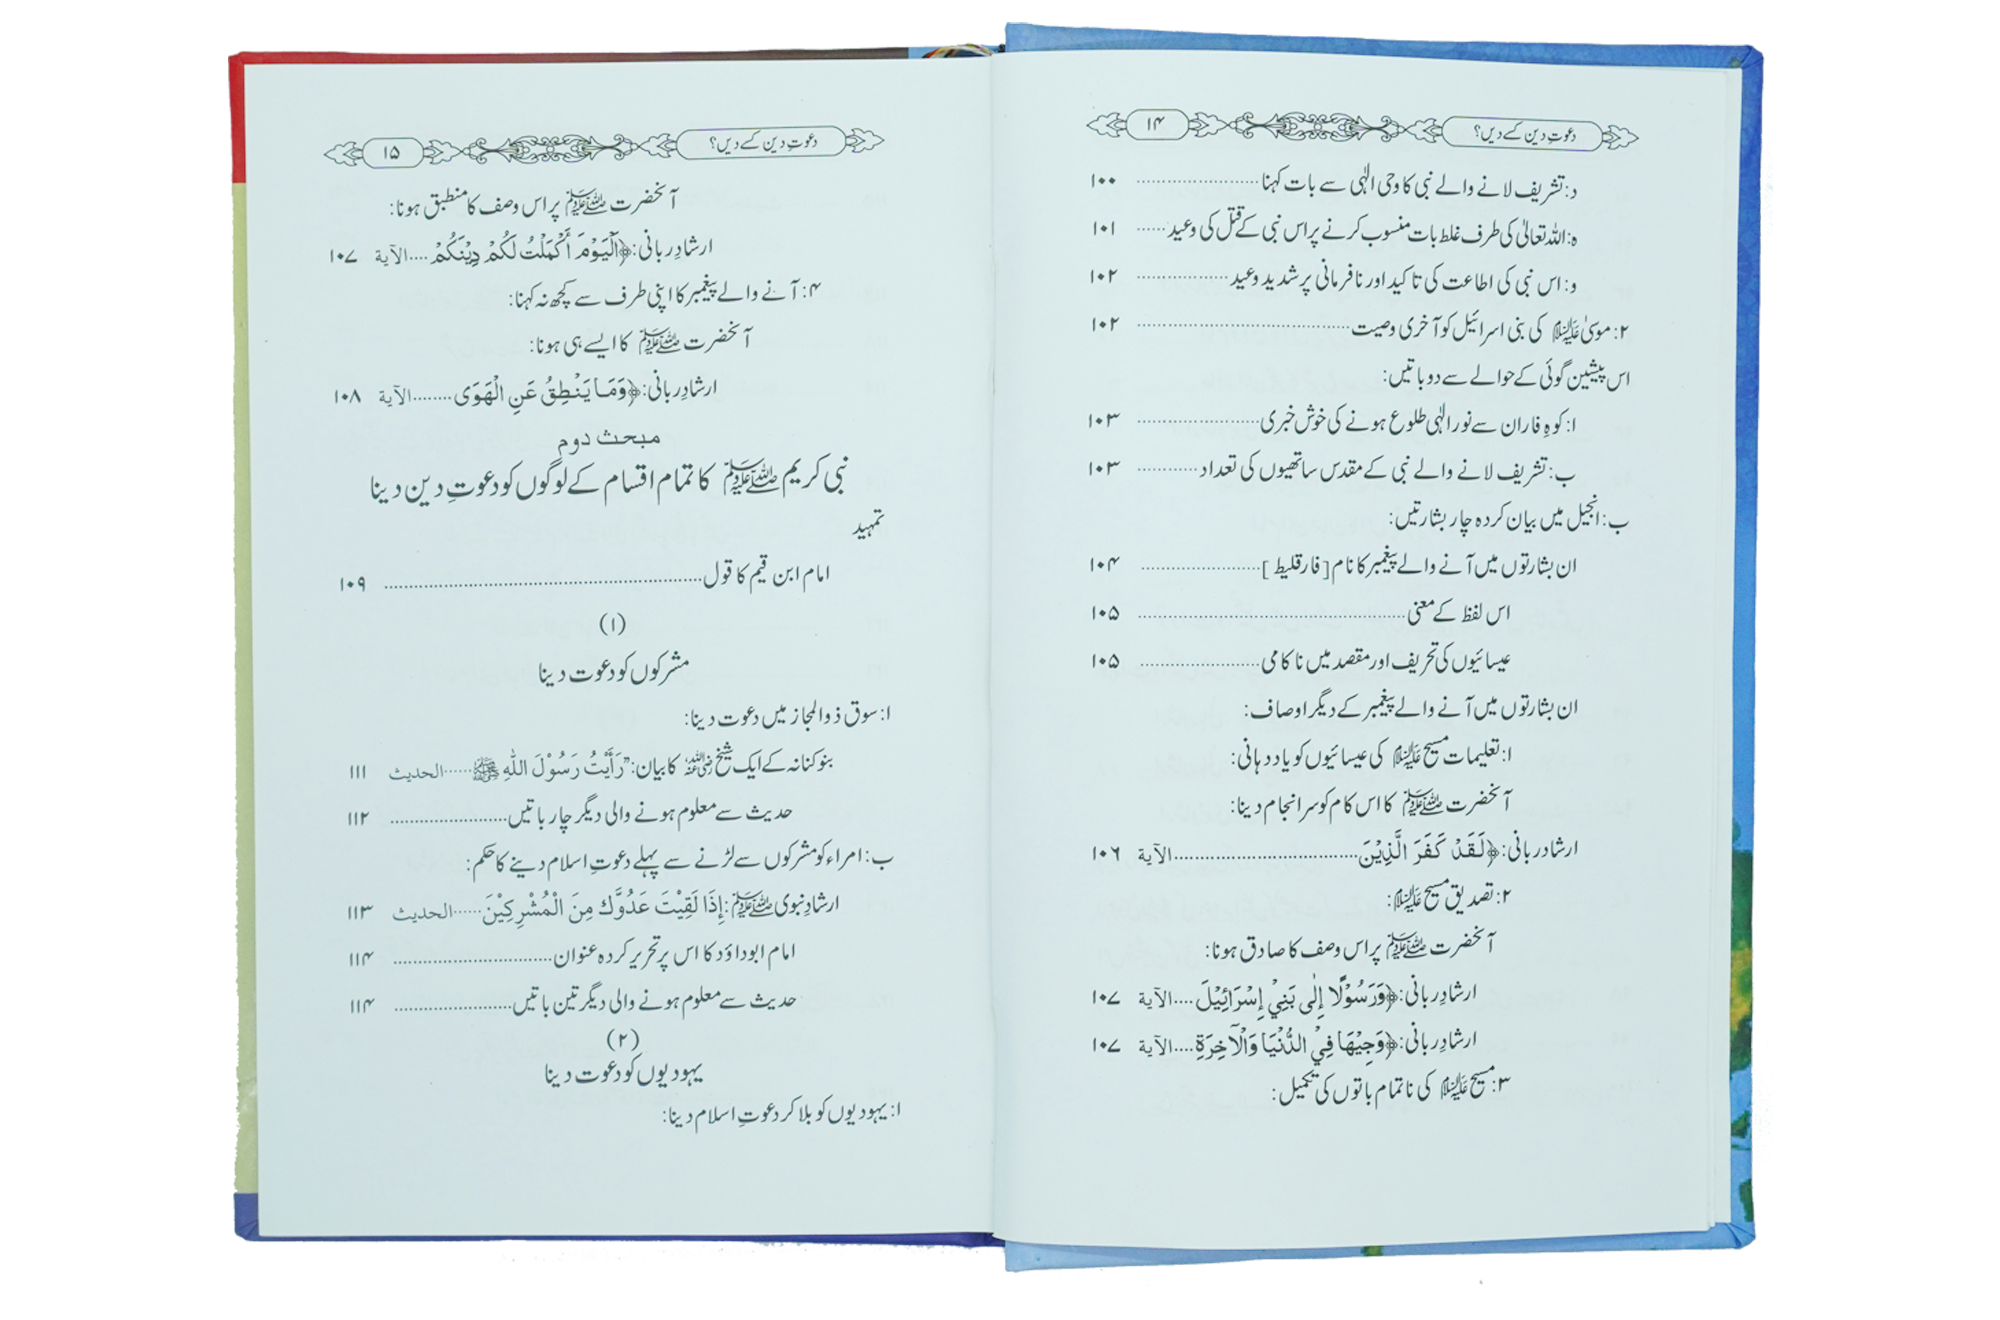 دعوتِ دین کسے دیں؟ ۱۴
د: تشریف لانے والے نبی کا وحی الٰہی سے بات کہنا ........................ ۱۰۰
ہ: اللہ تعالیٰ کی طرف غلط بات منسوب کرنے پر اس نبی کے قتل کی وعید ...... ۱۰۱
و: اس نبی کی اطاعت کی تاکید اور نافرمانی پر شدید وعید .................. ۱۰۲
۲: موسیٰ علیہ السلام کی بنی اسرائیل کو آخری وصیت ........................ ۱۰۲
اس پیشین گوئی کے حوالے سے دو باتیں:
ا: کوہِ فاران سے نور الٰہی طلوع ہونے کی خوش خبری ........................ ۱۰۳
ب: تشریف لانے والے نبی کے مقدس ساتھیوں کی تعداد ............ ۱۰۳
ب: انجیل میں بیان کردہ چار بشارتیں:
ان بشارتوں میں آنے والے پیغمبر کا نام [فارقلیط] ........................ ۱۰۴
اس لفظ کے معنی ........................ ۱۰۵
عیسائیوں کی تحریف اور مقصد میں ناکامی ........................ ۱۰۵
ان بشارتوں میں آنے والے پیغمبر کے دیگر اوصاف:
۱: تعلیمات مسیح علیہ السلام کی عیسائیوں کو یاد دہانی:
آنحضرت ﷺ کا اس کام کو سرانجام دینا:
ارشاد ربانی: ﴿لَقَدْ كَفَرَ الَّذِيْنَ ........................ الآية ۱۰۶
۲: تصدیق مسیح علیہ السلام:
آنحضرت ﷺ پر اس وصف کا صادق ہونا:
ارشادِ ربانی: ﴿وَرَسُوْلًا إِلٰى بَنِيْ إِسْرَائِيْلَ .... الآية ۱۰۷
ارشادِ ربانی: ﴿وَجِيْهًا فِيْ الدُّنْيَا وَالْآخِرَةِ .... الآية ۱۰۷
۳: مسیح علیہ السلام کی ناتمام باتوں کی تکمیل:
دعوتِ دین کسے دیں؟ ۱۵
آنحضرت ﷺ پر اس وصف کا منطبق ہونا:
ارشادِ ربانی: ﴿اَلْيَوْمَ أَكْمَلْتُ لَكُمْ دِيْنَكُمْ .... الآية ۱۰۷
۴: آنے والے پیغمبر کا اپنی طرف سے کچھ نہ کہنا:
آنحضرت ﷺ کا ایسے ہی ہونا:
ارشادِ ربانی: ﴿وَمَا يَنْطِقُ عَنِ الْهَوَى ........ الآية ۱۰۸
مبحث دوم
نبی کریم ﷺ کا تمام اقسام کے لوگوں کو دعوتِ دین دینا
تمہید
امام ابن قیم کا قول ........................ ۱۰۹
(۱)
مشرکوں کو دعوت دینا
ا: سوق ذوالمجاز میں دعوت دینا:
بنو کنانہ کے ایک شیخ رضی اللہ عنہ کا بیان: ”رَأَيْتُ رَسُوْلَ اللّٰهِ ﷺ ...... الحديث ۱۱۱
حدیث سے معلوم ہونے والی دیگر چار باتیں ........................ ۱۱۲
ب: امراء کو مشرکوں سے لڑنے سے پہلے دعوتِ اسلام دینے کا حکم:
ارشادِ نبوی ﷺ: إِذَا لَقِيْتَ عَدُوَّكَ مِنَ الْمُشْرِكِيْنَ ...... الحديث ۱۱۳
امام ابوداؤد کا اس پر تحریر کردہ عنوان ........................ ۱۱۴
حدیث سے معلوم ہونے والی دیگر تین باتیں ........................ ۱۱۴
(۲)
یہودیوں کو دعوت دینا
ا: یہودیوں کو بلا کر دعوتِ اسلام دینا: